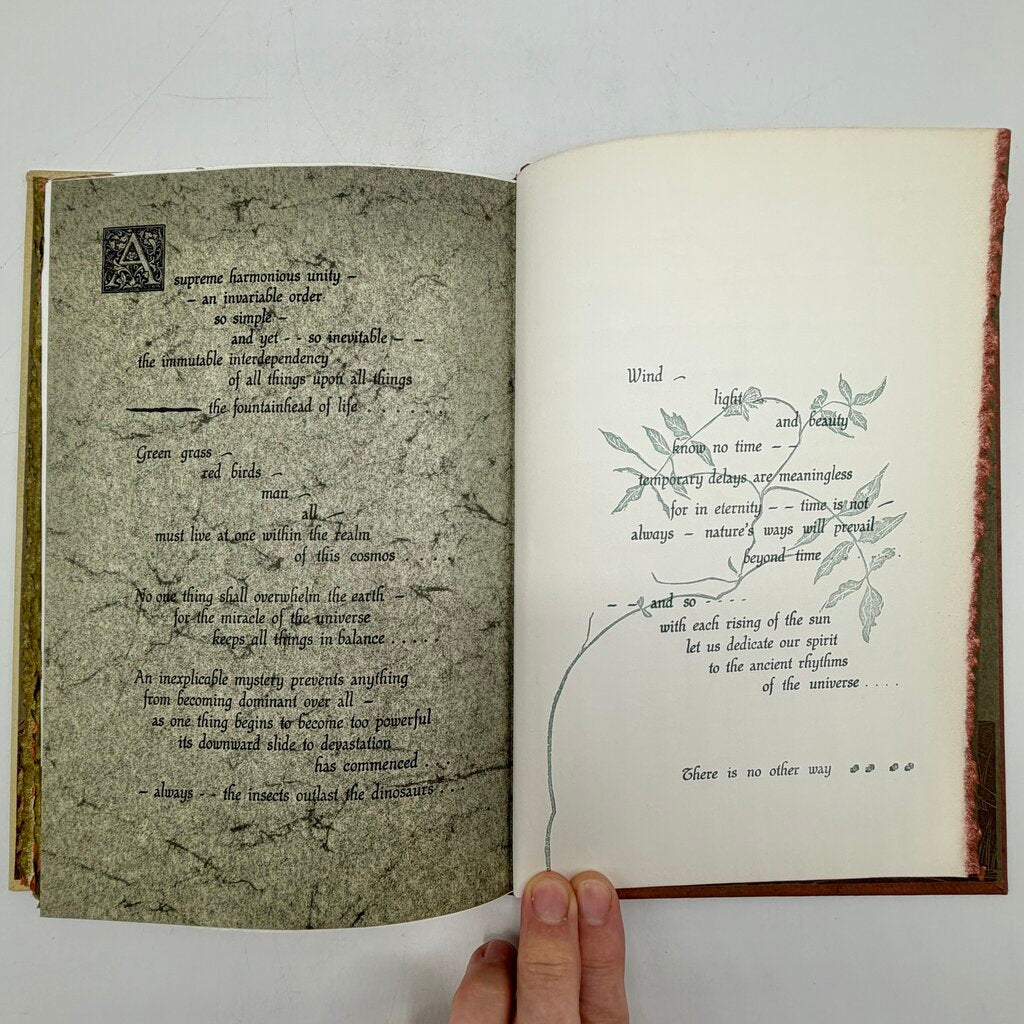 A
supreme harmonious unity –
– an invariable order
so simple –
and yet - - so inevitable – –
the immutable interdependency
of all things upon all things
——— the fountainhead of life . . . . . .
Green grass –
red birds –
man –
all –
must live at one within the realm
of this cosmos . . . .
No one thing shall overwhelm the earth –
for the miracle of the universe
keeps all things in balance . . . . .
An inexplicable mystery prevents anything
from becoming dominant over all –
as one thing begins to become too powerful
its downward slide to devastation
has commenced . . .
– always - - the insects outlast the dinosaurs . . .
Wind –
light –
and beauty
know no time - -
temporary delays are meaningless
for in eternity – – time is not –
always – nature's ways will prevail
beyond time . . . .
– – and so - - - -
with each rising of the sun
let us dedicate our spirit
to the ancient rhythms
of the universe . . . .
There is no other way